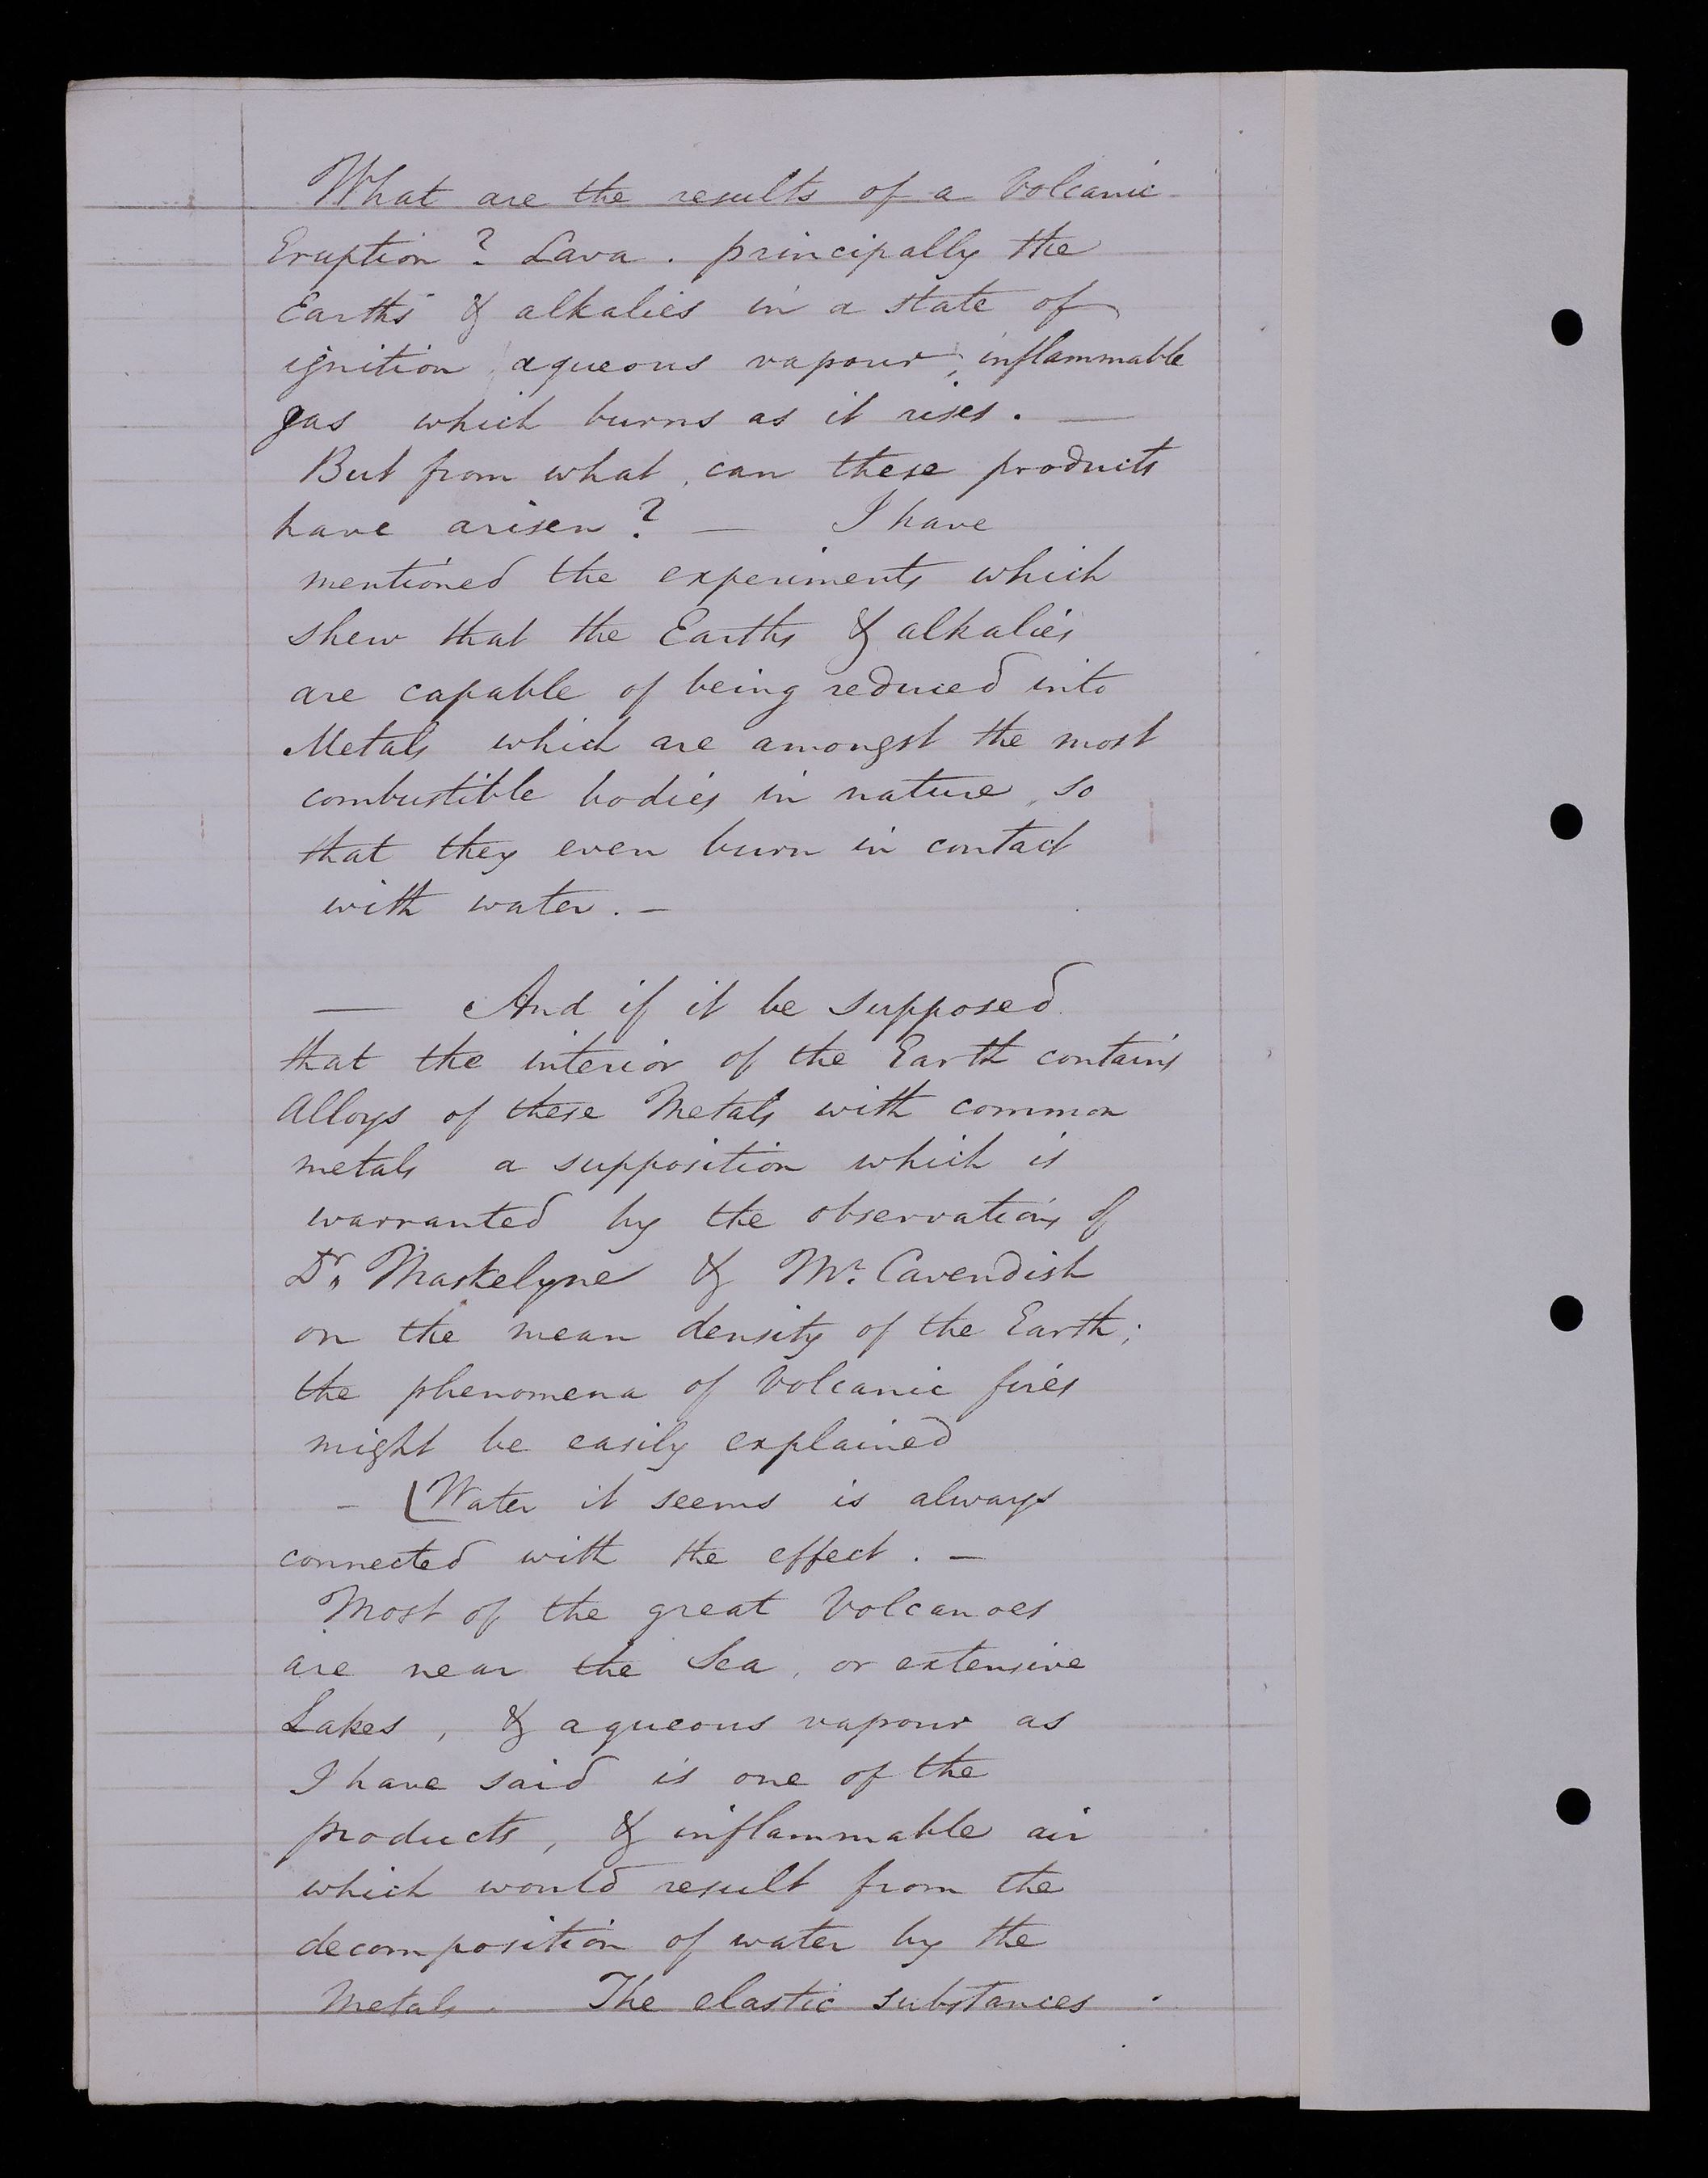 What are the results of a Volcanic
Eruption ? Lava . principally the
Earths & alkalies in a state of
ignition , aqueous vapour , inflammable
gas which burns as it rises . —
But from what , can these products
have arisen ? — I have
mentioned the experiments which
shew that the Earths & alkalies
are capable of being reduced into
Metals which are amongst the most
combustible bodies in nature , so
that they even burn in contact
with water . —
— And if it be supposed
that the interior of the Earth contains
Alloys of these Metals with common
metals a supposition which is
warranted by the observations of
Dr. Maskelyne & Mr. Cavendish
on the mean density of the Earth ;
the phenomena of Volcanic fires
might be easily explained
— [Water it seems is always
connected with the effect . —
Most of the great Volcanoes
are near the Sea , or extensive
Lakes , & aqueous vapour as
I have said is one of the
products , & inflammable air
which would result from the
decomposition of water by the
Metals . The elastic substances